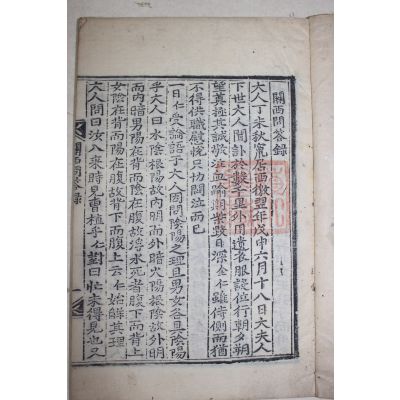 關西問答錄
大人丁未秋竄居西徼翌年戊申六月十八日大夫人
下世大人聞訃於數千里外用遺衣服設位行朝夕朔
望奠極其誠敬泣血
不得供職慰悅只切悶泣而已
一日仁受論語于大人因問陰陽之理且男女各具陰陽
乎大人曰水陰根陽故內明而外暗火陽根陰故外明
而內暗男陽在背而陰在腹故浮水死者男腹下而背上
女陰在背而陽在腹故背下而腹上云仁始解其理
大人問曰汝入來時見曹植乎仁對曰忙未得見也又
關西問答錄
一